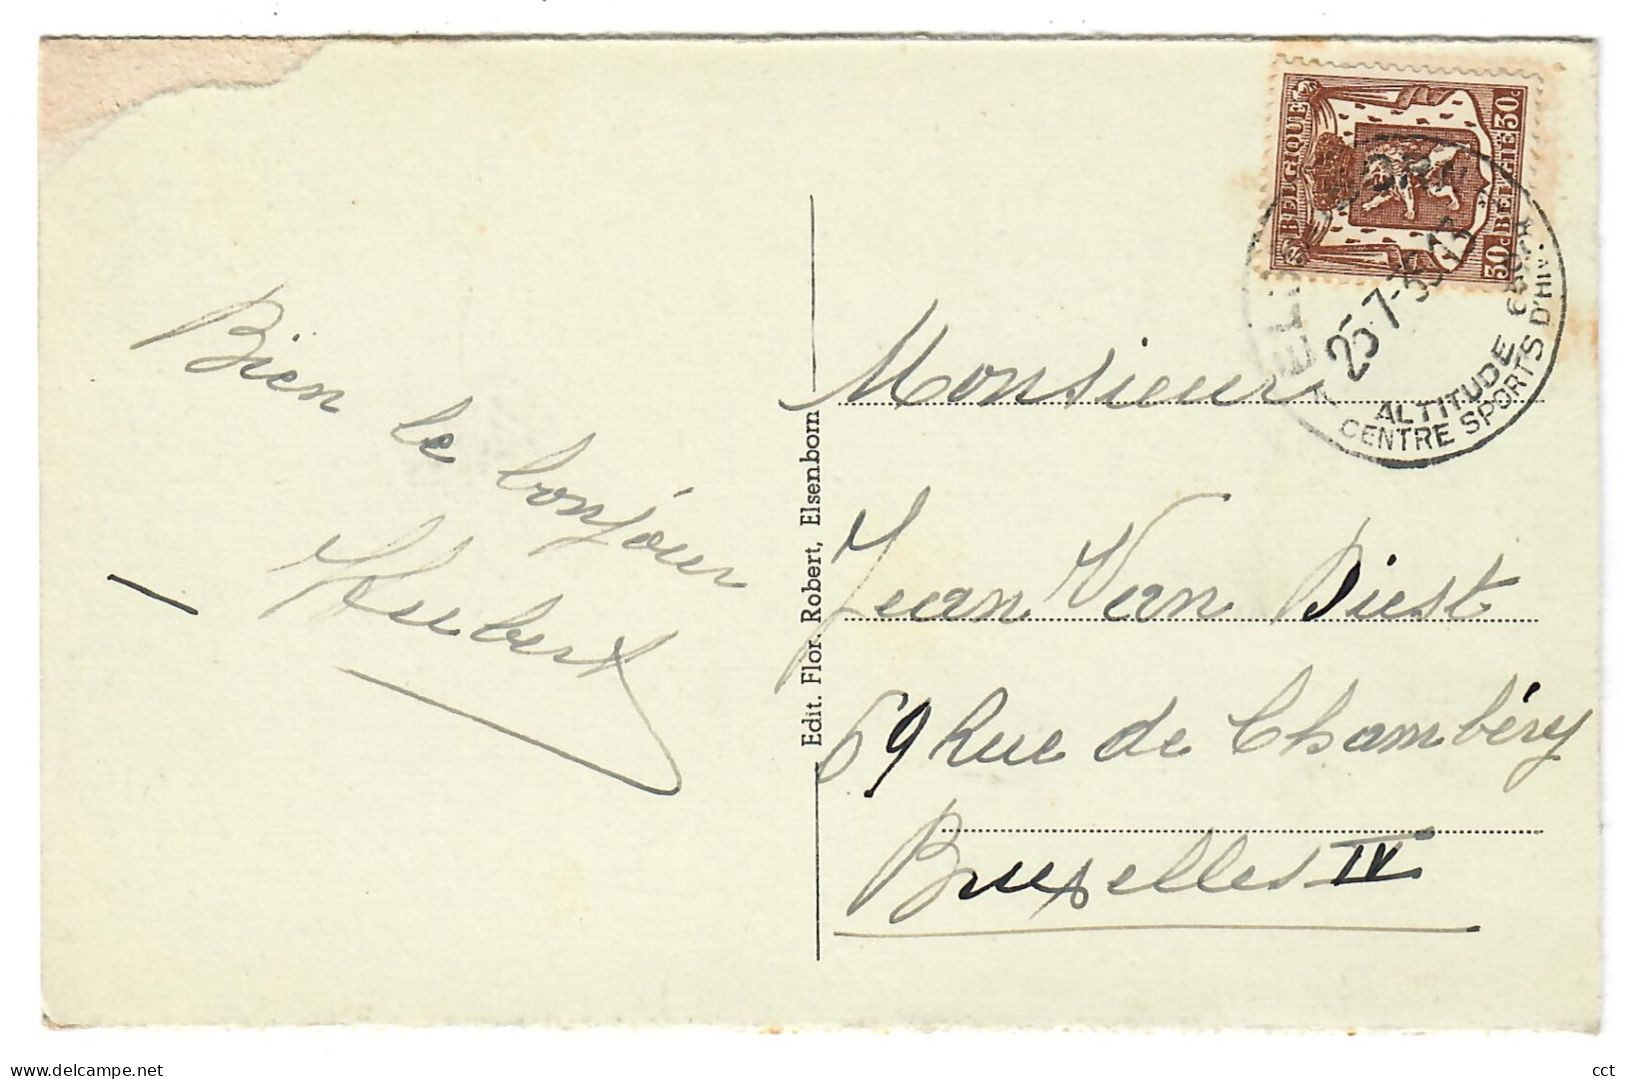 Bien le bonjour
Hubert
Edit. Flor. Robert, Elsenborn
BELGIQUE 30c
30c BELGIË
25-7-39-13
ALTITUDE
CENTRE SPORTS D'HIV.
Monsieur
Jean Van Biest
69 Rue de Chambéry
Bruxelles IV
www.delcampe.net
cct